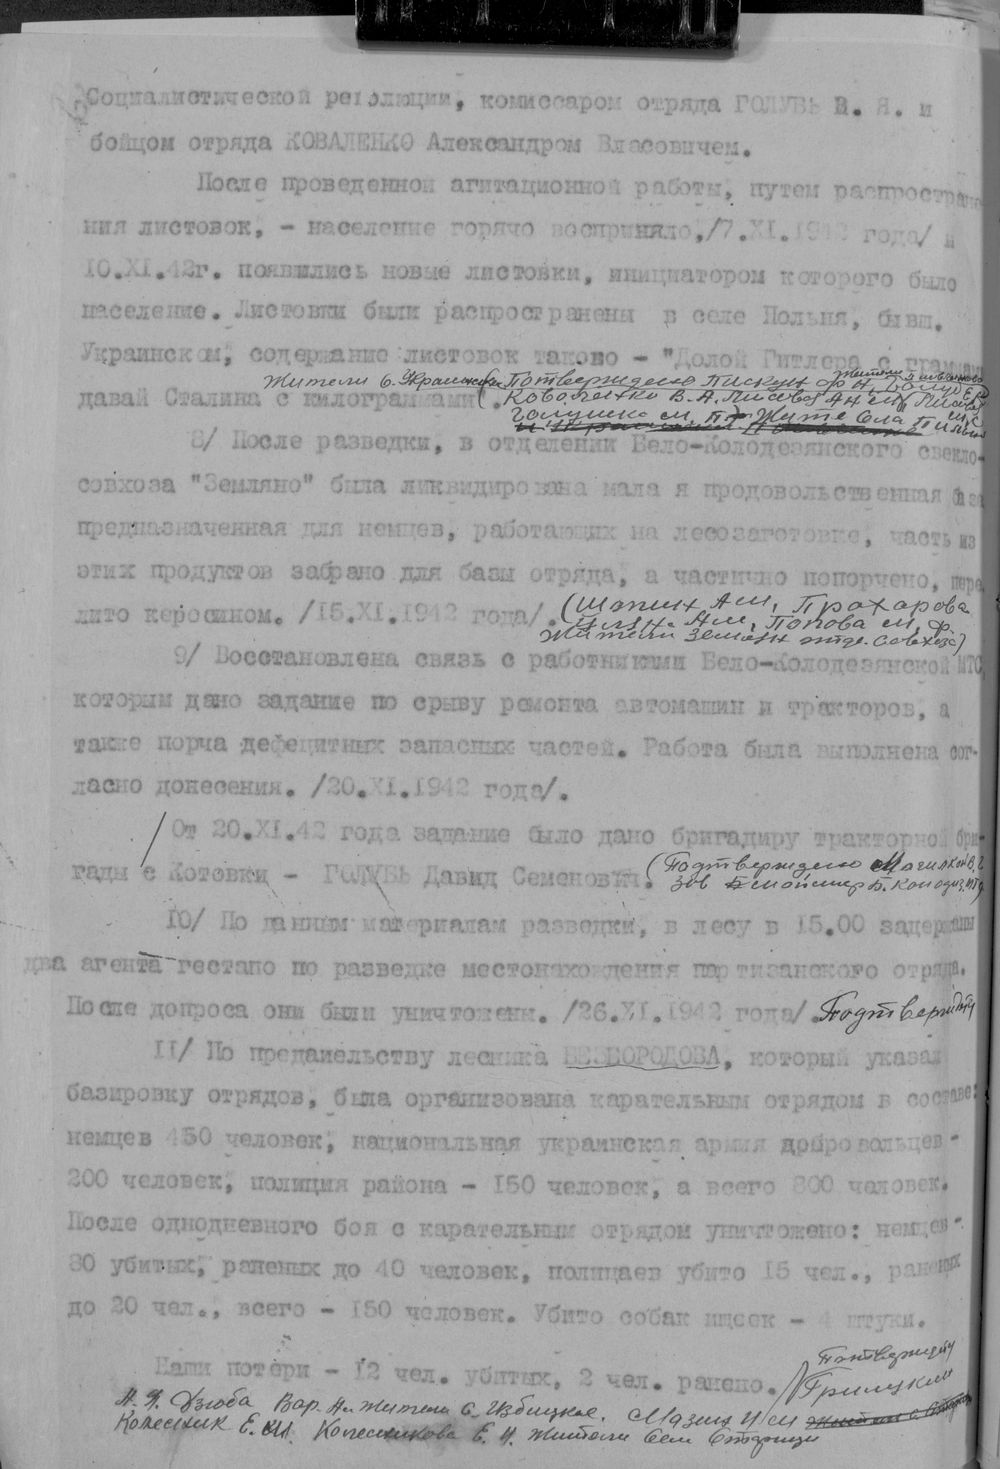 Социалистической революции, комиссаром отряда ГОЛУБЬ И. Я. и
бойцом отряда КОВАЛЕНКО Александром Власовичем.
После проведенной агитационной работы, путем распростране
ния листовок, - население горячо восприняло,/7.XI.1942 года/ и
10.XI.42г. появились новые листовки, инициатором которого было
население. Листовки были распространены в селе Польня, бывш.
Украинском, содержание листовок таково - "Долой Гитлера с граммами
Жители с. Украинское Потверждено Пискун Ф Н
давай Сталина с килограммами".
Коваленко В. А. Лисовая
Голушко М. П.
8/ После разведки, в отделении Бело-Колодезянского свекло-
совхоза "Земляно" была ликвидирована мала я продовольственная база
предназначенная для немцев, работающих на лесозаготовке, часть из
этих продуктов забрано для базы отряда, а частично попорчено, пере
лито керосином. /15.XI.1942 года/. (Шапин А М, Прохарова
А М, Попова М. Ф.
Жители Землян отде. Совхоза)
9/ Восстановлена связь с работниками Бело-Колодезянской МТС,
которым дано задание по срыву ремонта автомашин и тракторов, а
также порча дефецитных запасных частей. Работа была выполнена сог-
ласно донесения. /20.XI.1942 года/.
От 20.XI.42 года задание было дано бригадиру тракторной бри-
гады с Котовки - ГОЛУБЬ Давид Семенович. (Подтверждено
Зав Б. Колодез. МТС)
10/ По данным материалам разведки, в лесу в 15.00 задержаны
два агента гестапо по разведке местонахождения партизанского отряда.
После допроса они были уничтожены. /26.XI.1942 года/. Подтвержд
11/ По предательству лесника БЕЗБОРОДОВА, который указал
базировку отрядов, была организована карательным отрядом в составе:
немцев 450 человек, национальная украинская армия добровольцев -
200 человек, полиция района - 150 человек, а всего 800 человек.
После однодневного боя с карательным отрядом уничтожено: немцев -
80 убитых, раненых до 40 человек, полицаев убито 15 чел., раненых
до 20 чел., всего - 150 человек. Убито собак ищеек - 4 штуки.
Потвержд
Наши потери - 12 чел. убитых, 2 чел. ранено. Грицкий
Дзюба Вар. Ан. жители с. Избицкое. Мазин И М
Колесник Е. М. Колесникова Е. И. жители Сели Старици